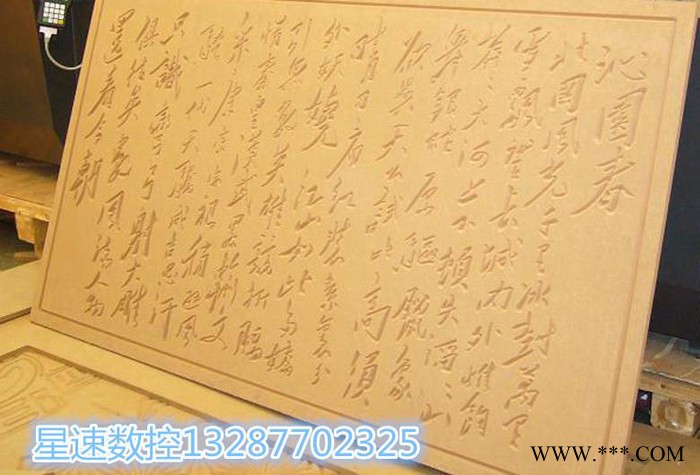 沁園春
北国风光千里冰封萬里
雪飘望长城内外惟餘
莽莽大河上下頓失滔滔山
舞银蛇原驰蠟象
欲与天公試比高須
晴日看红装素裹分
外妖娆江山如此多嬌
引無数英雄競折腰
惜秦皇漢武略輸文
采唐宗宋祖稍遜風
騷一代天驕成吉思汗
只識彎弓射大雕
俱往矣数風流人物
還看今朝
星速数控13287702325
www.***.com